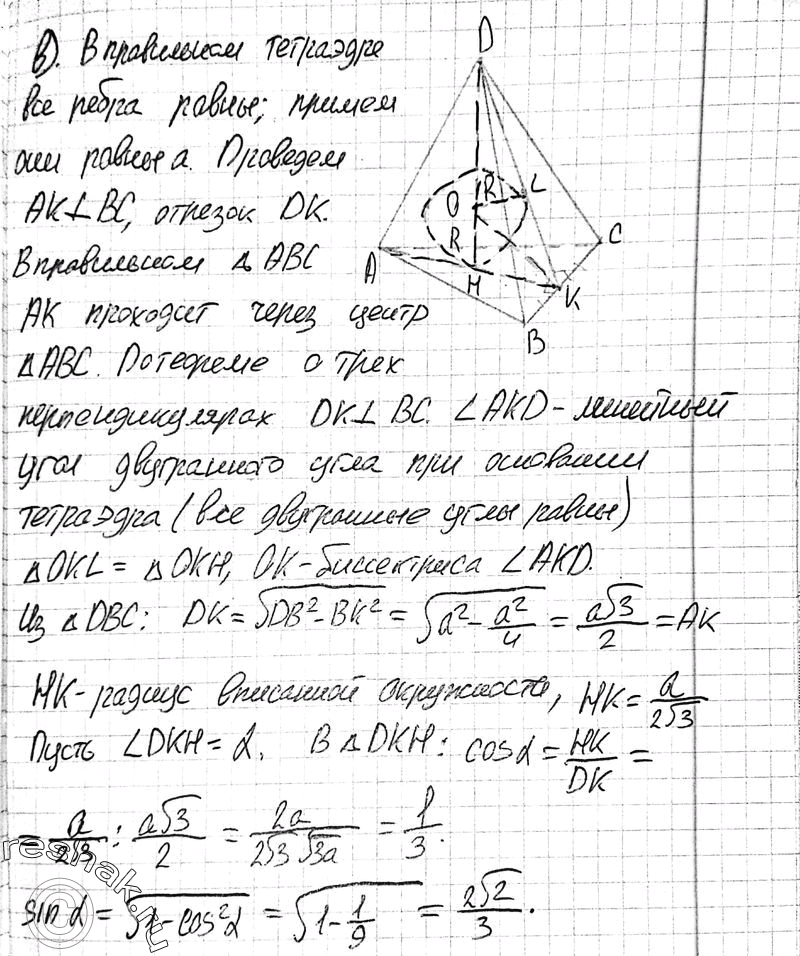 в). В правильном тетраэдре
все ребра равны; примем
они равны a. Проведем
AK⊥BC, отрезок DK.
В правильном △ABC
AK проходит через центр
△ABC. По теореме о трех
перпендикулярах DK⊥BC. ∠AKD - линейный
угол двугранного угла при основании
тетраэдра (все двугранные углы равны)
△OKL = △OKH, OK - биссектриса ∠AKD.
Из △DBC: DK = √(DB² - BK²) = √(a² - a²/4) = a√3/2 = AK
HK - радиус вписанной окружности, HK = a/2√3
Пусть ∠DKH = α. В △DKH: cos α = HK/DK =
= a/2√3 : a√3/2 = 2a/2√3 √3a = 1/3.
sin α = √(1 - cos²α) = √(1 - 1/9) = 2√2/3.
D
R L
O
R
A C
H K
B
reshak.ru
©